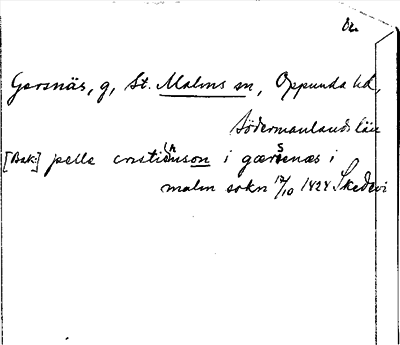 Gersnäs, g, St. Malms sn, Oppunda hd,
Södermanlands län
[Bak:] pelle cristiernson i gærsenæs i
malm sokn 17/10 1424 Skedevi